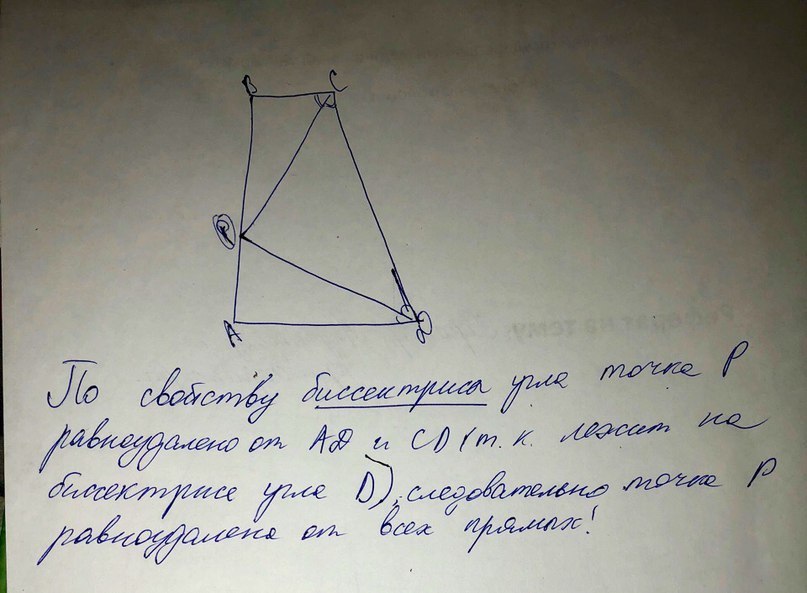 B C
P
A D
По свойству биссектрисы угла точка P
равноудалено от AD и CD (т.к. лежит на
биссектрисе угла D), следовательно точка P
равноудалена от всех прямых!